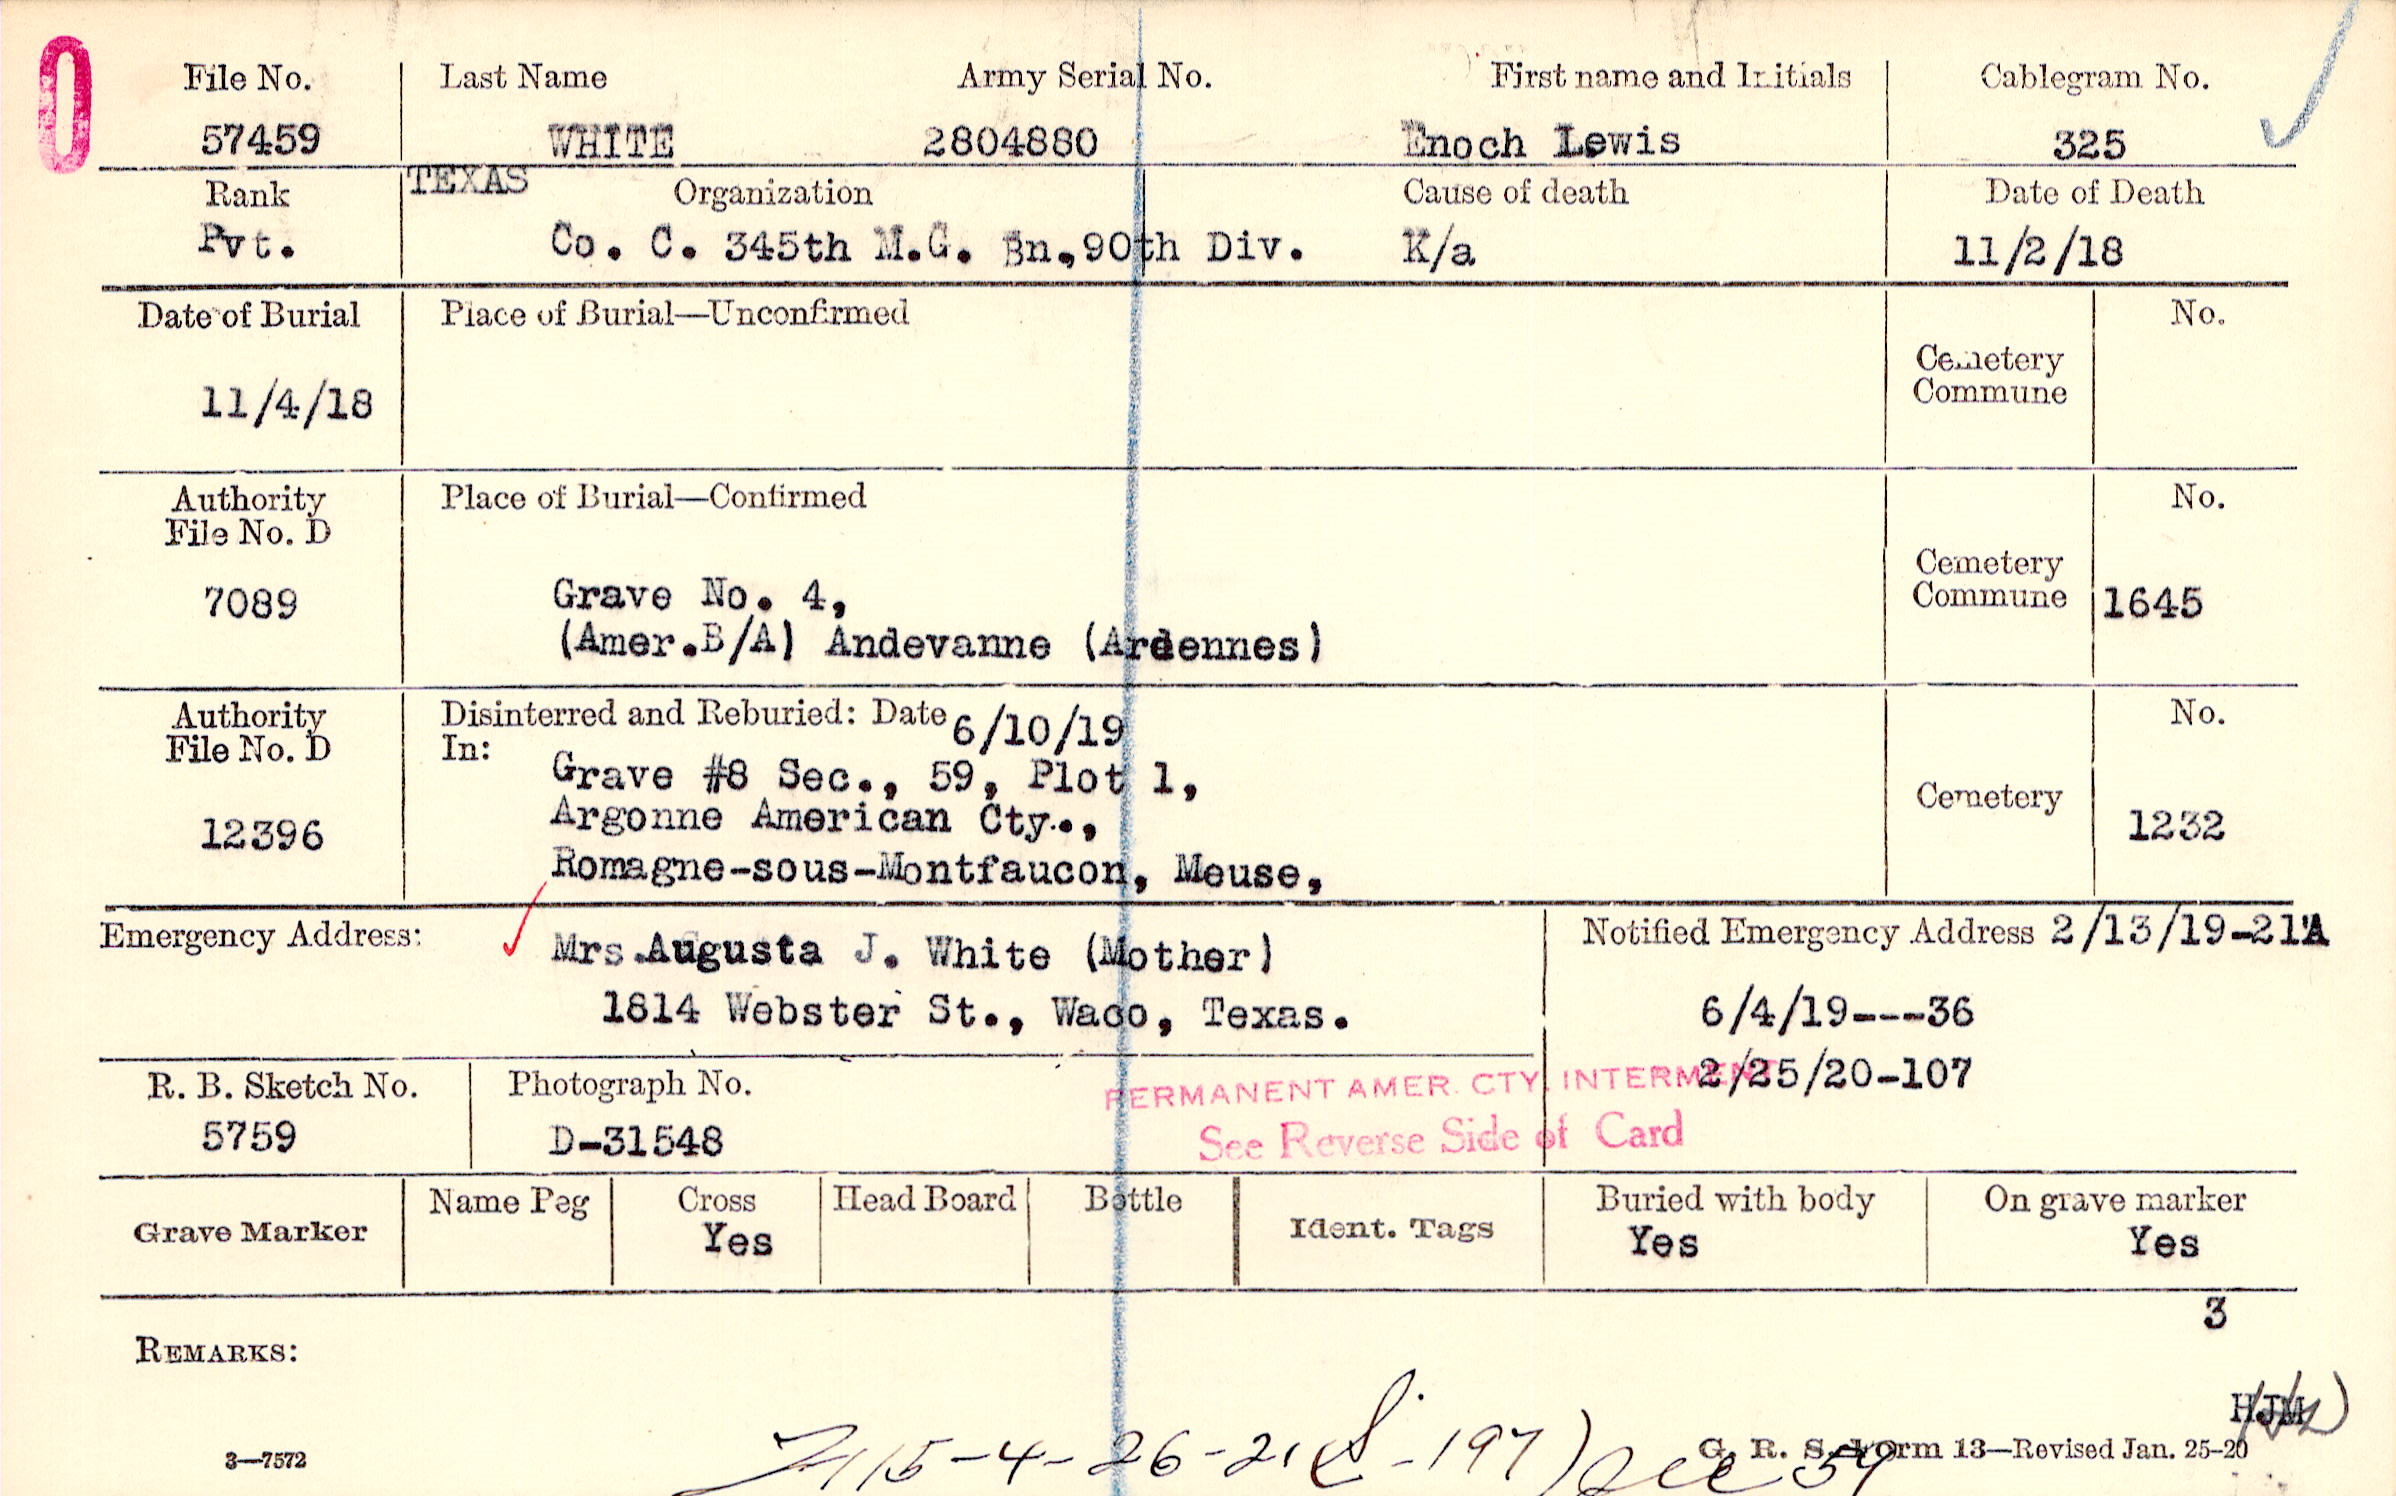 File No. Last Name Army Serial No. First name and Initials Cablegram No.
57459 WHITE 2804880 Enoch Lewis 325
Rank TEXAS Organization Cause of death Date of Death
Pvt. Co. C. 345th M.G. Bn.,90th Div. K/a 11/2/18
Date of Burial Place of Burial—Unconfirmed No.
Cemetery
Commune
11/4/18
Authority Place of Burial—Confirmed No.
File No. D
Cemetery
Commune 1645
7089 Grave No. 4,
(Amer.B/A) Andevanne (Ardennes)
Authority Disinterred and Reburied: Date 6/10/19 No.
File No. D In:
Grave #8 Sec., 59, Plot 1,
Cemetery
12396 Argonne American Cty.., 1232
Romagne-sous-Montfaucon, Meuse,
Emergency Address: Mrs.Augusta J. White (Mother) Notified Emergency Address 2/13/19-21A
1814 Webster St., Waco, Texas. 6/4/19---36
2/25/20-107
R. B. Sketch No. Photograph No. PERMANENT AMER. CTY. INTERMENT
5759 D-31548 See Reverse Side of Card
Grave Marker Name Peg Cross Head Board Bottle Ident. Tags Buried with body On grave marker
Yes Yes Yes
3
REMARKS:
HJM
3—7572 G. R. S. Form 13—Revised Jan. 25-20
15-4-26-21 -197) Sec 59